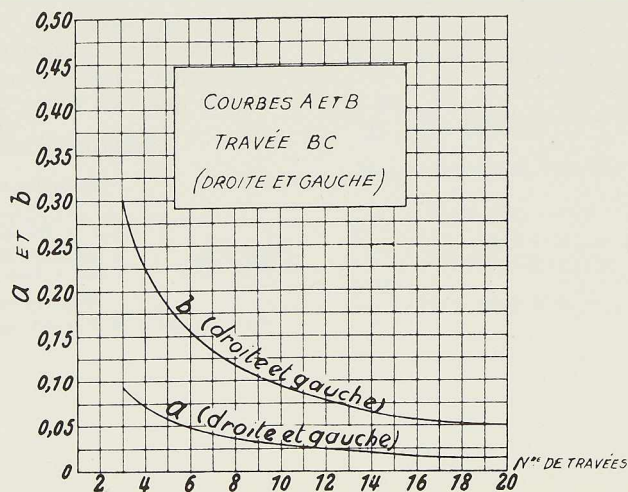 0,50
0,45
0,40
0,35
0,30
0,25
0,20
0,15
0,10
0,05
0
a ET b
COURBES A ET B
TRAVÉE BC
(DROITE ET GAUCHE)
b (droite et gauche)
a (droite et gauche)
2 4 6 8 10 12 14 16 18 20
DE TRAVÉES